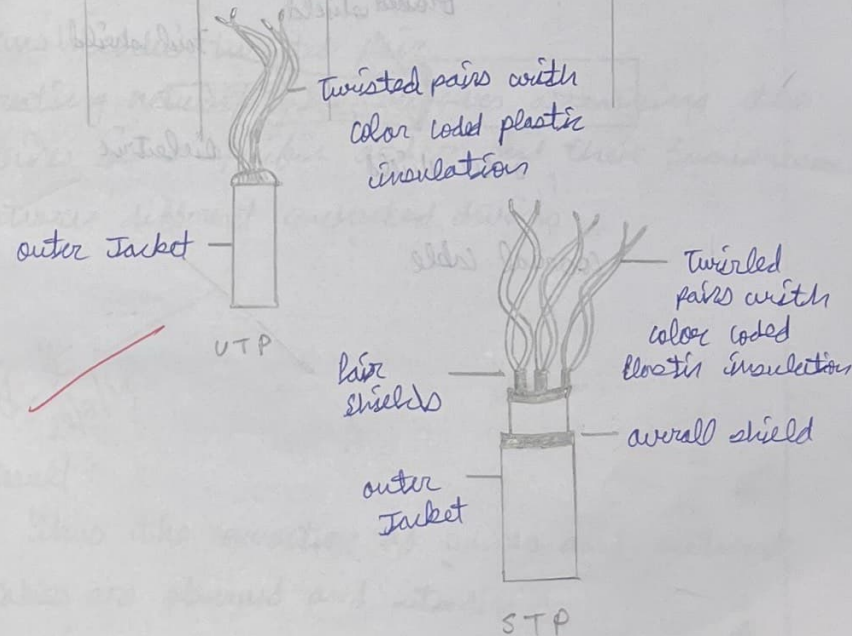 Twisted pairs with
color coded plastic
insulation
outer Jacket
UTP
Twirled
pairs with
color coded
Plastic insulation
Pair
shields
overall shield
outer
Jacket
STP